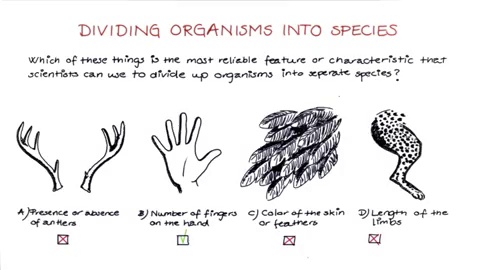 DIVIDING ORGANISMS INTO SPECIES
Which of these things is the most reliable feature or characteristic that
scientists can use to divide up organisms into seperate species?
A) Presence or absence
of antlers
B) Number of fingers
on the hand
C) Color of the skin
or feathers
D) Length of the
limbs